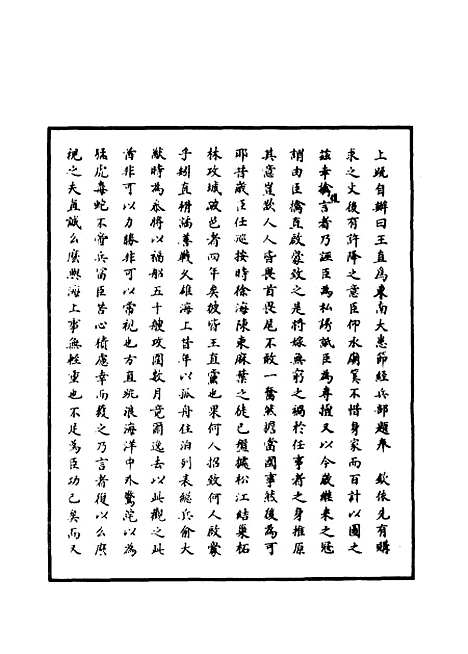 上疏自辯曰王直為東南大患節經兵部題奉　欽依先有購
求之文後有許降之意臣仰承廟筭不惜身家而百計以圖之
茲幸擒獲言者乃誣臣為私誘詆臣為專擅又以今歲繼來之寇
謂由臣擒直啟釁致之是將嫁無窮之禍於任事者之身推原
其意豈欲人人皆畏首畏尾不敢一奮然擔當國事然後為可
耶昔歲臣任巡按時徐海陳東麻葉之徒已盤據松江結巢柘
林攻城破邑者四年矣彼皆王直黨也果何人招致何人啟釁
乎矧直猾滿善戰久雄海上昔年以孤舟住泊列表總兵俞大
猷時為參將以福船五十艘攻圍數月竟爾逸去以此觀之此
酋非可以力勝非可以常視也方直跳浪海洋中外驚詫以為
猛虎毒蛇不啻兵當臣苦心積慮幸而獲之乃言者復以么麼
視之夫直誠么麼與海上事無輕重也不足為臣功已矣而又